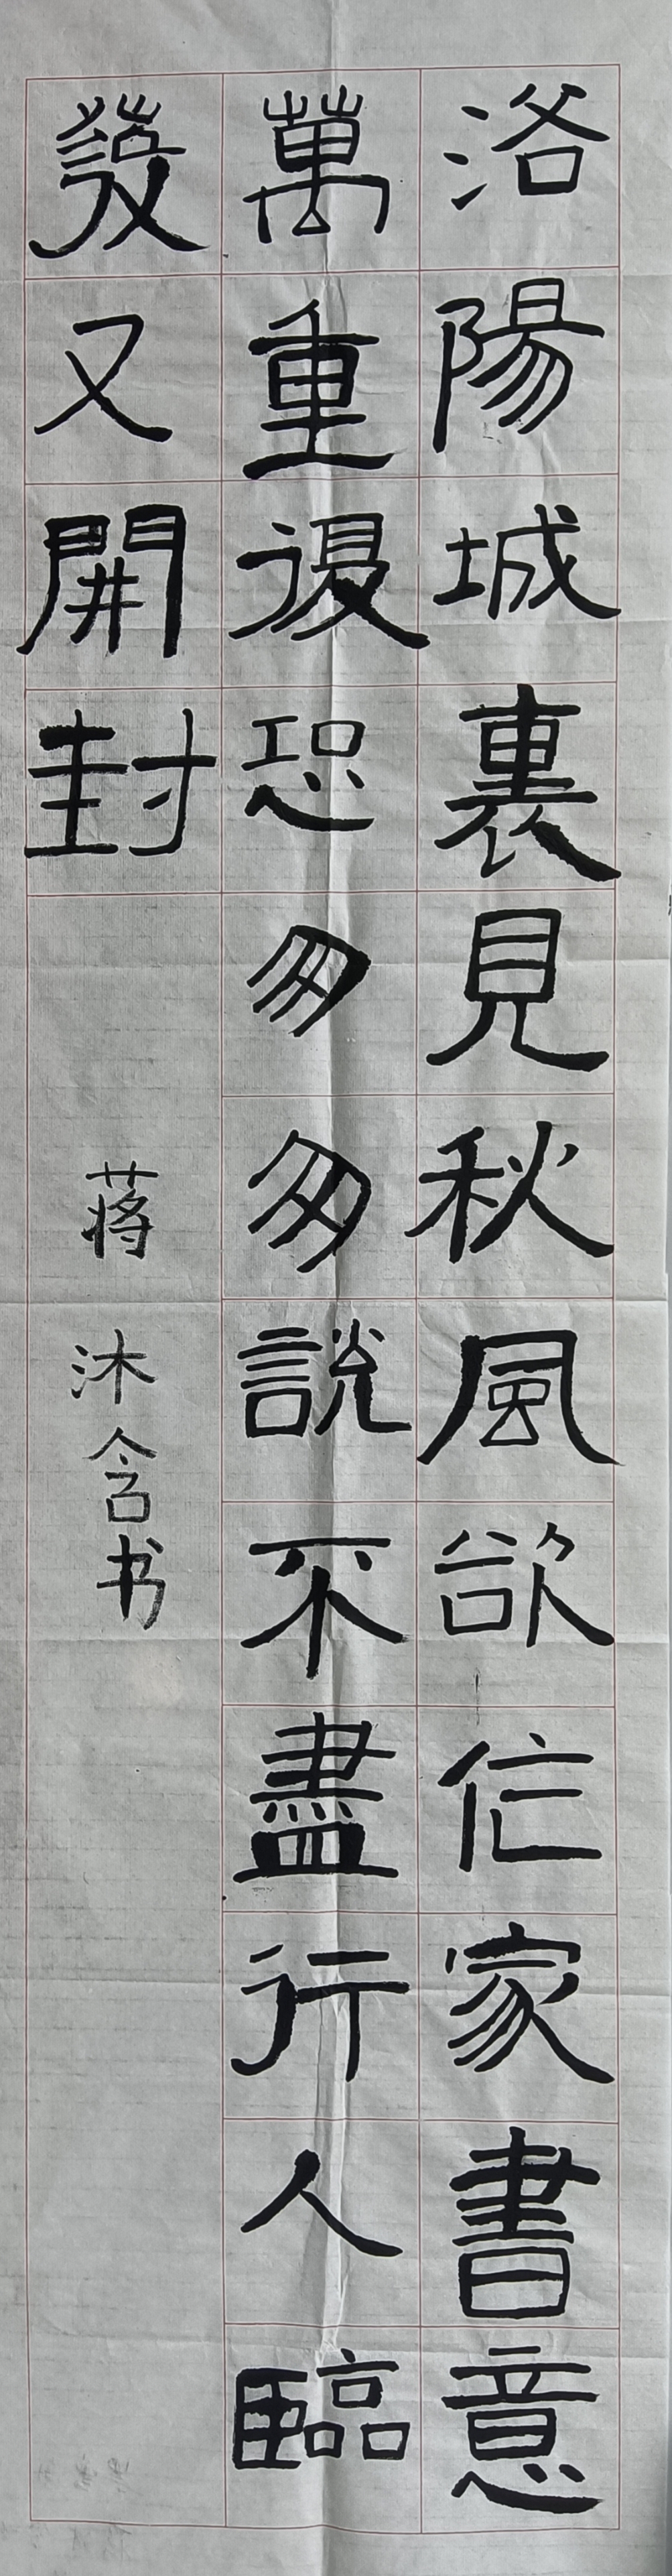 洛陽城裏見秋風欲作家書意
萬重復恐匆匆說不盡行人臨
發又開封
蒋沐含书